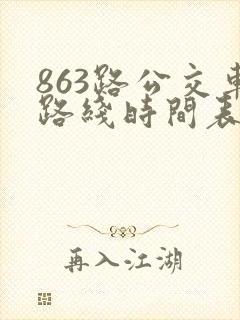 863路公交車
路綫時間表
再入江湖